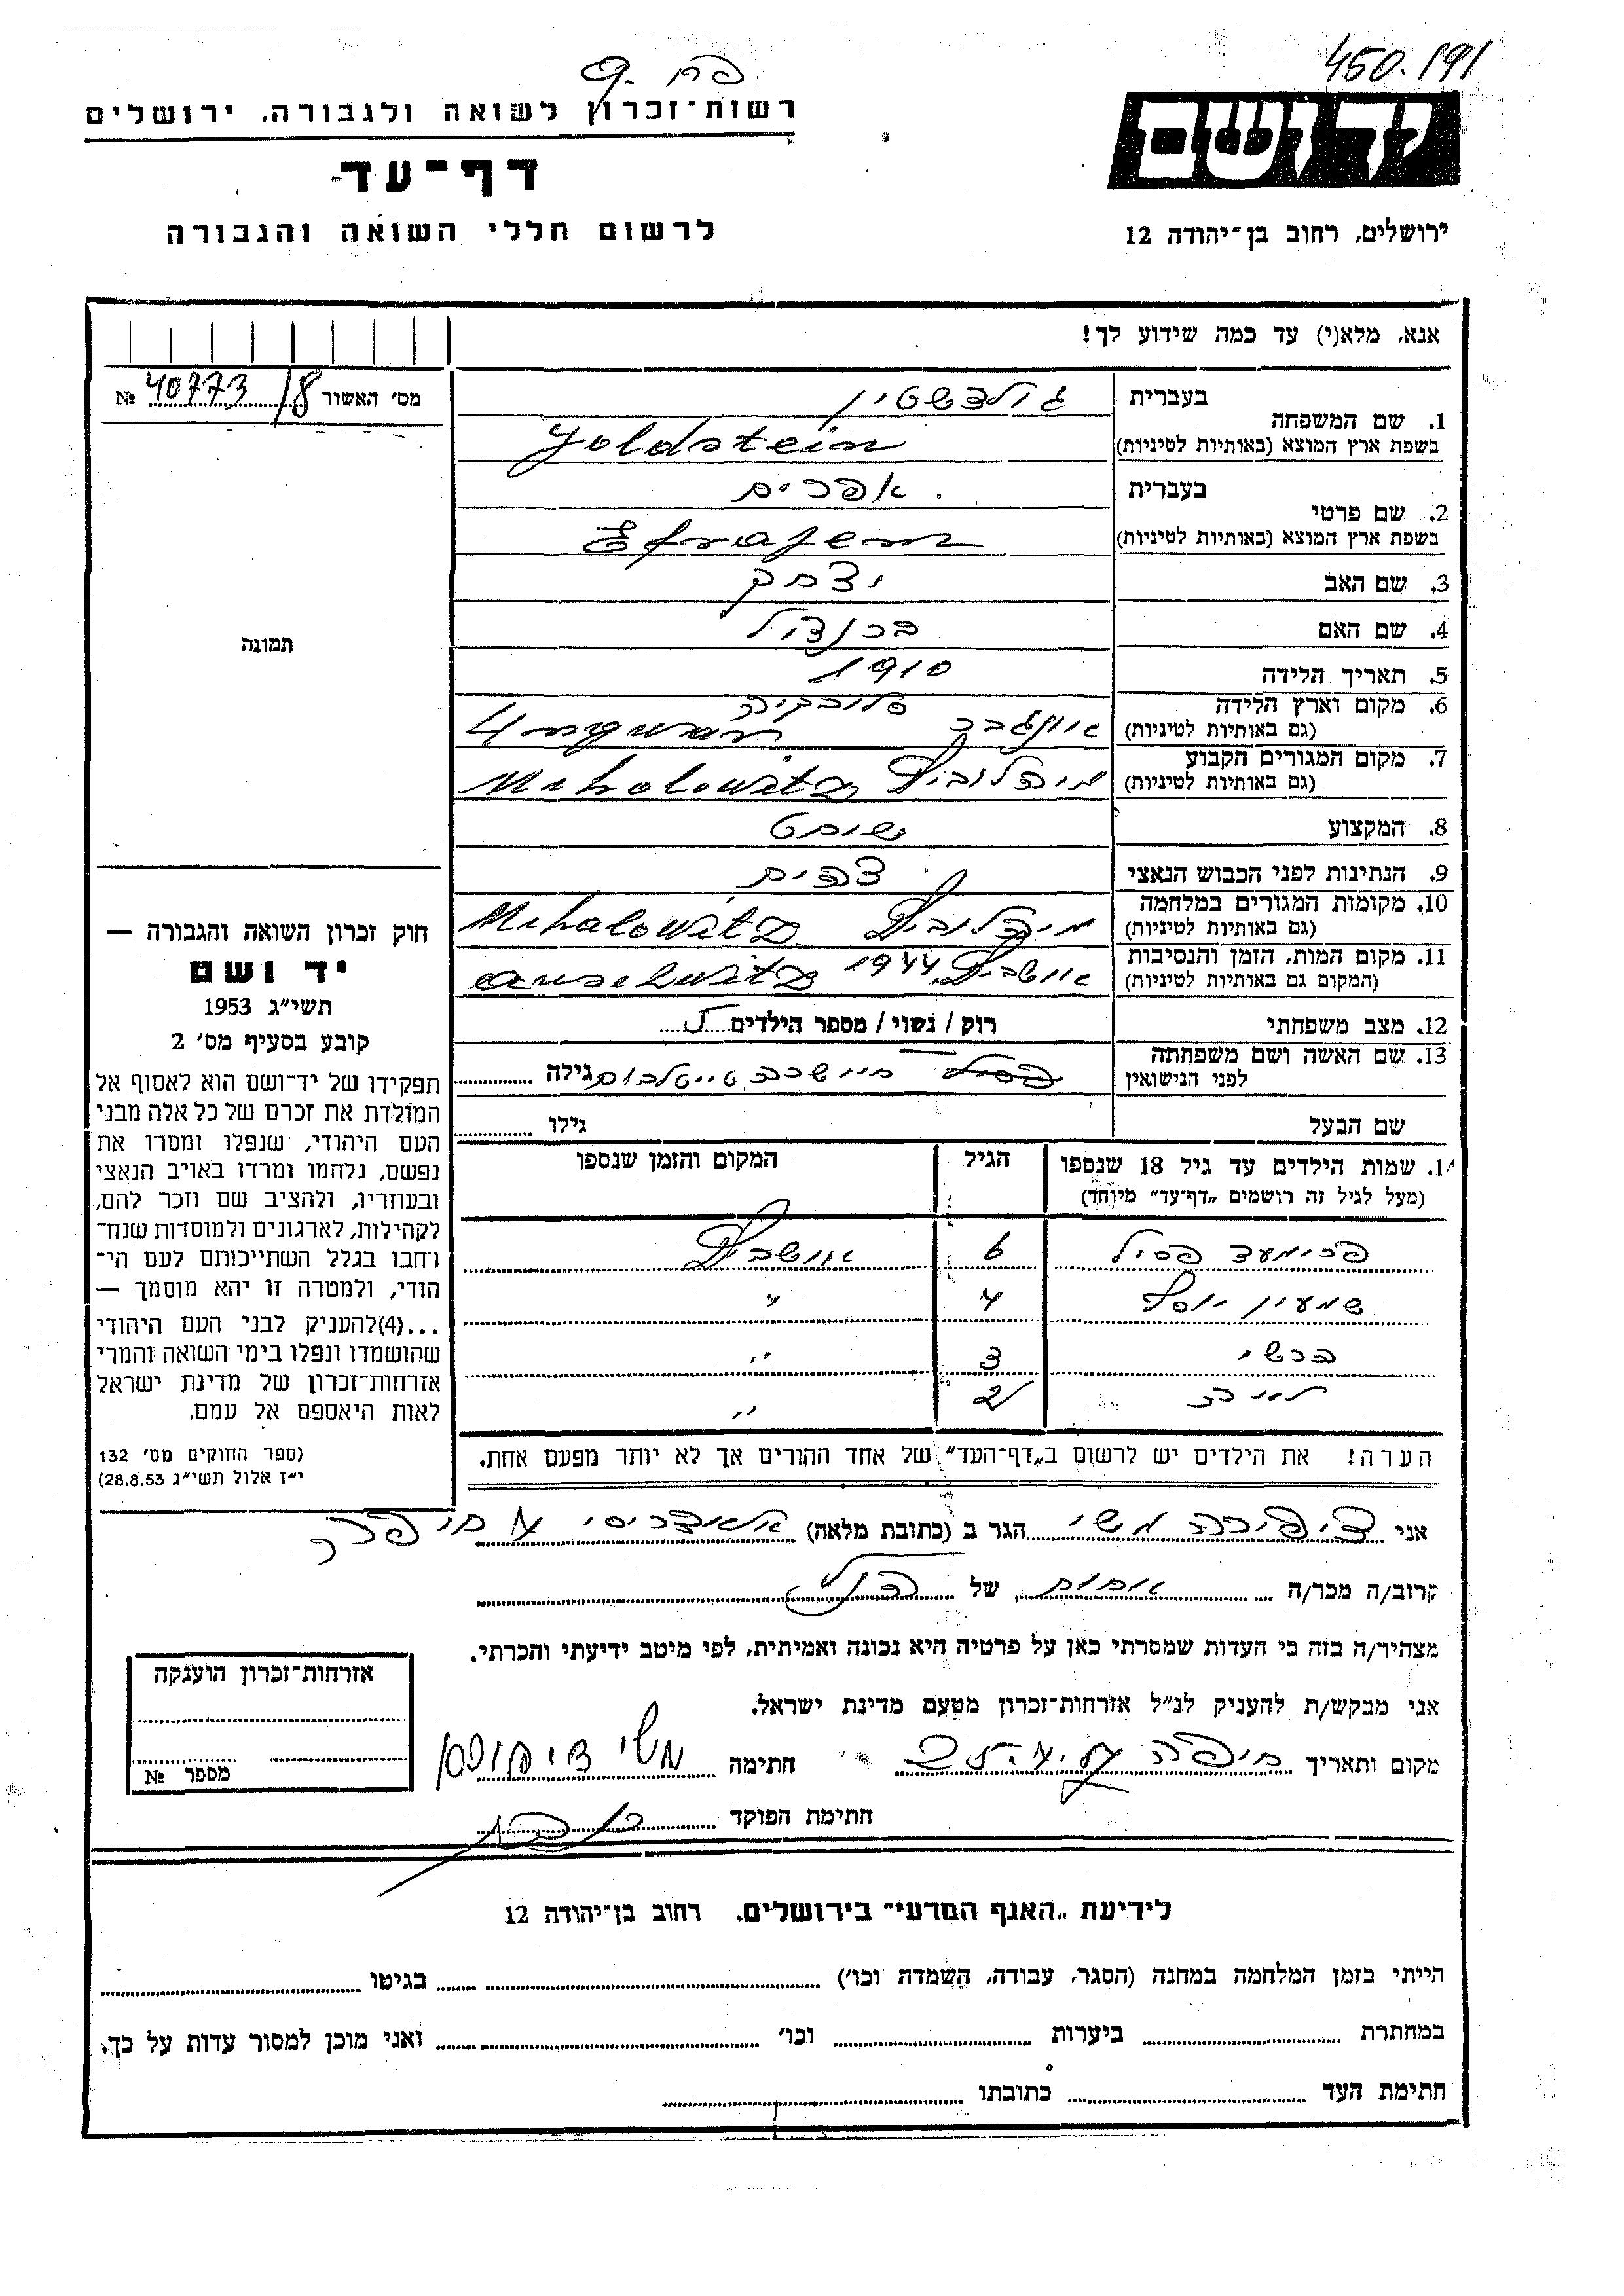 450.191
רשות-זכרון לשואה ולגבורה, ירושלים
יד ושם
דף-עד
לרשום חללי השואה והגבורה
ירושלים, רחוב בן-יהודה 12
אנא, מלא(י) עד כמה שידוע לך!
מס' האשור № 40773/8
בעברית גולדשטין
1. שם המשפחה
בשפת ארץ המוצא (באותיות לטיניות) Goldstein
בעברית אפרים
2. שם פרטי
בשפת ארץ המוצא (באותיות לטיניות) Efrajem
3. שם האב יצחק
4. שם האם
5. תאריך הלידה 1910
6. מקום וארץ הלידה סלובקיה
(גם באותיות לטיניות) אונגבר Ungwar
7. מקום המגורים הקבוע
(גם באותיות לטיניות) מיהלוביץ Miholowitz
8. המקצוע שוחט
9. הנתינות לפני הכבוש הנאצי
10. מקומות המגורים במלחמה
(גם באותיות לטיניות) מיהלוביץ Mihalowitz
11. מקום המות, הזמן והנסיבות
(המקום גם באותיות לטיניות) אושביץ 1944 Auschwitz
12. מצב משפחתי רוק / נשוי / מספר הילדים 5
13. שם האשה ושם משפחתה
לפני הנישואין טייטלבוים גילה
שם הבעל גילו
14. שמות הילדים עד גיל 18 שנספו הגיל המקום והזמן שנספו
(מעל לגיל זה רושמים "דף-עד" מיוחד)
פסיל 6 אושביץ
שמעון יוסף 4 "
הרשי 3 "
לאה 2 "
הערה! את הילדים יש לרשום ב"דף-העד" של אחד ההורים אך לא יותר מפעם אחת.
תמונה
חוק זכרון השואה והגבורה —
יד ושם
תשי"ג 1953
קובע בסעיף מס' 2
תפקידו של יד-ושם הוא לאסוף אל
המולדת את זכרם של כל אלה מבני
העם היהודי, שנפלו ומסרו את
נפשם, נלחמו ומרדו באויב הנאצי
ובעוזריו, ולהציב שם וזכר להם,
לקהילות, לארגונים ולמוסדות שנח-
רבו בגלל השתייכותם לעם הי-
הודי, ולמטרה זו יהא מוסמך —
...(4)להעניק לבני העם היהודי
שהושמדו ונפלו בימי השואה והמרי
אזרחות-זכרון של מדינת ישראל
לאות היאספם אל עמם.
(ספר החוקים מס' 132
י"ז אלול תשי"ג 28.8.53)
אני ציפורה משי הגר ב (כתובת מלאה) חיפה
קרוב/ה מכר/ה אחות של הנ"ל
מצהיר/ה בזה כי העדות שמסרתי כאן על פרטיה היא נכונה ואמיתית, לפי מיטב ידיעתי והכרתי.
אני מבקש/ת להעניק לנ"ל אזרחות-זכרון מטעם מדינת ישראל.
מקום ותאריך חיפה חתימה משי ציפורה
חתימת הפוקד
אזרחות-זכרון הוענקה
מספר №
לידיעת "האגף המדעי" בירושלים. רחוב בן-יהודה 12
הייתי בזמן המלחמה במחנה (הסגר, עבודה, השמדה וכו') בגיטו
במחתרת ביערות וכו' ואני מוכן למסור עדות על כך.
חתימת העד כתובתו